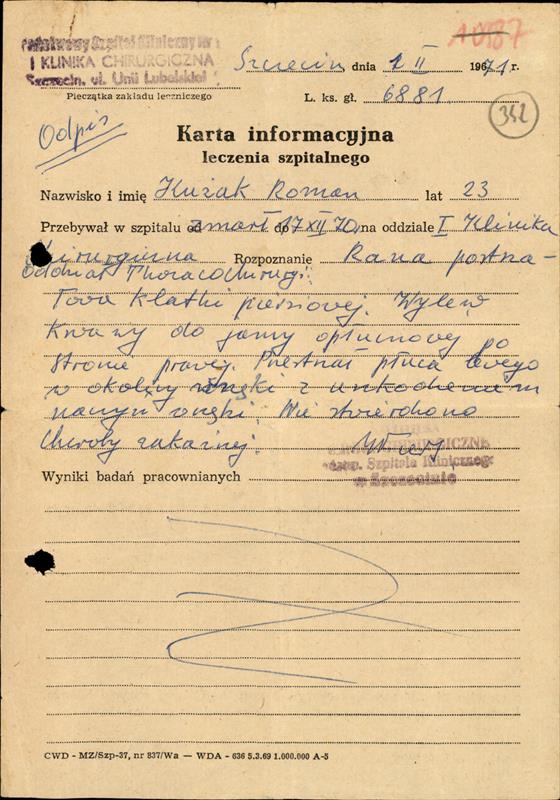 Państwowy Szpital Kliniczny Nr 1
I KLINIKA CHIRURGICZNA
Szczecin, ul. Unii Lubelskiej
Pieczątka zakładu leczniczego
A 0187
Szczecin, dnia 1 II 1971 r.
L. ks. gł. 6881.
352
Odpis
Karta informacyjna
leczenia szpitalnego
Nazwisko i imię Kużak Roman lat 23
Przebywał w szpitalu od zmarł do 17 XII 70 na oddziale I Klinika
Chirurgiczna Rozpoznanie Rana postrza-
Oddział Thoracochirurgi.
łowa klatki piersiowej. Wylew
krwawy do jamy opłucnowej po
stronie prawej. Przestrzał płuca lewego
w okolicy wnęki z uszkodzeniem
naczyń wnęki. Nie stwierdzono
choroby zakaźnej.
Szpitala Klinicznego
w Szczecinie
Wyniki badań pracownianych
CWD - MZ/Szp-37, nr 837/Wa — WDA - 636 5.3.69 1.000.000 A-5